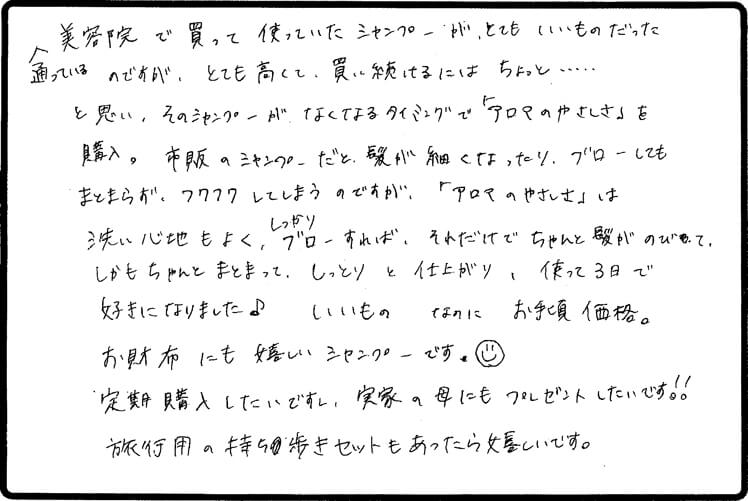 通っている美容院で買って使っていたシャンプーが、とてもいいものだった
のですが、とても高くて、買い続けるにはちょっと……
と思い、そのシャンプーがなくなるタイミングで「アロマのやさしさ」を
購入。市販のシャンプーだと、髪が細くなったり、ブローしても
まとまらず、フワフワしてしまうのですが、「アロマのやさしさ」は
洗い心地もよく、しっかりブローすれば、それだけでちゃんと髪がのびて、
しかもちゃんとまとまって、しっとりと仕上がり、使って3日で
好きになりました♪ いいものなのにお手頃価格。
お財布にも嬉しいシャンプーです。
定期購入したいですし、実家の母にもプレゼントしたいです!!
旅行用の持ち歩きセットもあったら嬉しいです。